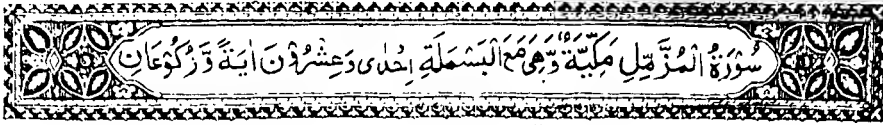 سُوْرَةُ الْمُزَّمِّلِ مَكِّيَّةٌ وَّهِىَ مَعَ الْبَسْمَلَةِ اِحْدٰى وَعِشْرُوْنَ اٰيَةً وَّرُكُوْعَانِ